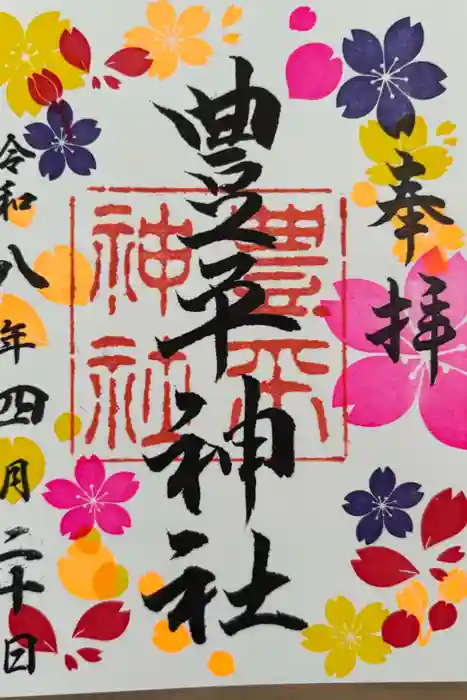 奉拝
豊平神社
豊平
神社
令和八年四月二十日